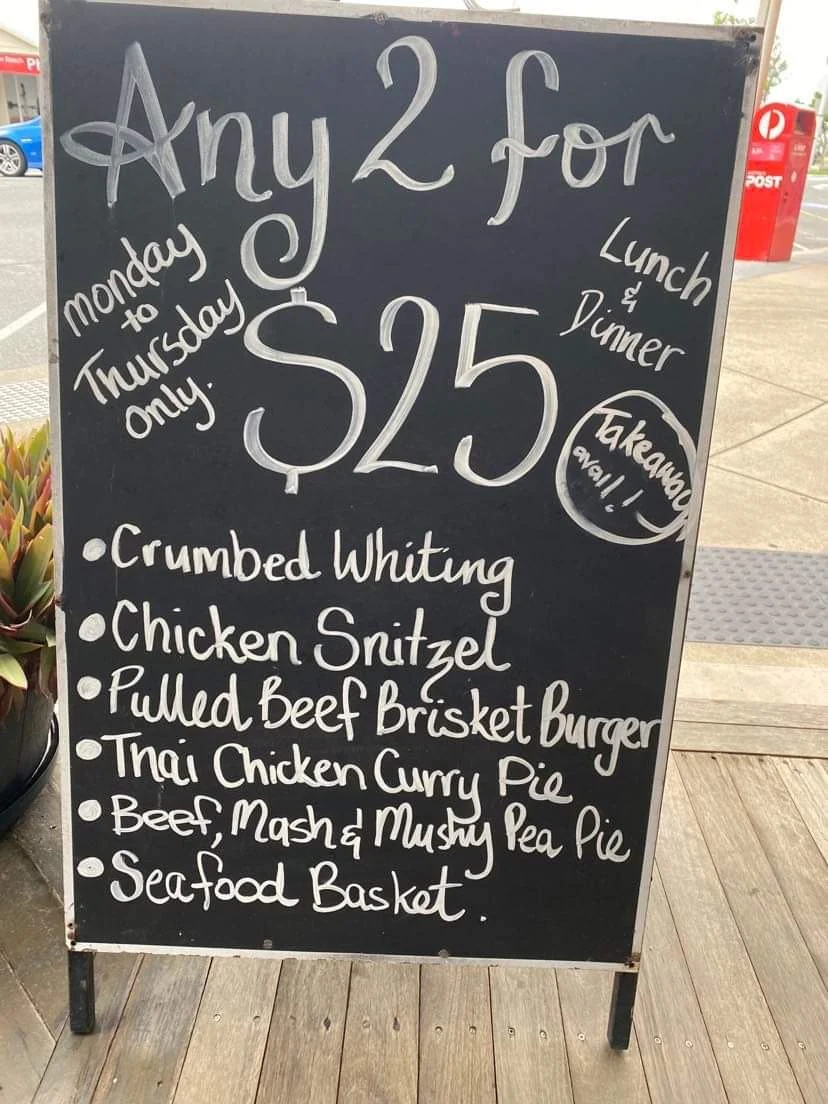 Any 2 for
$25
Monday
to
Thursday
only.
Lunch
&
Dinner
Takeaway
avail!
• Crumbed Whiting
• Chicken Snitzel
• Pulled Beef Brisket Burger
• Thai Chicken Curry Pie
• Beef, Mash & Mushy Pea Pie
• Seafood Basket.
POST